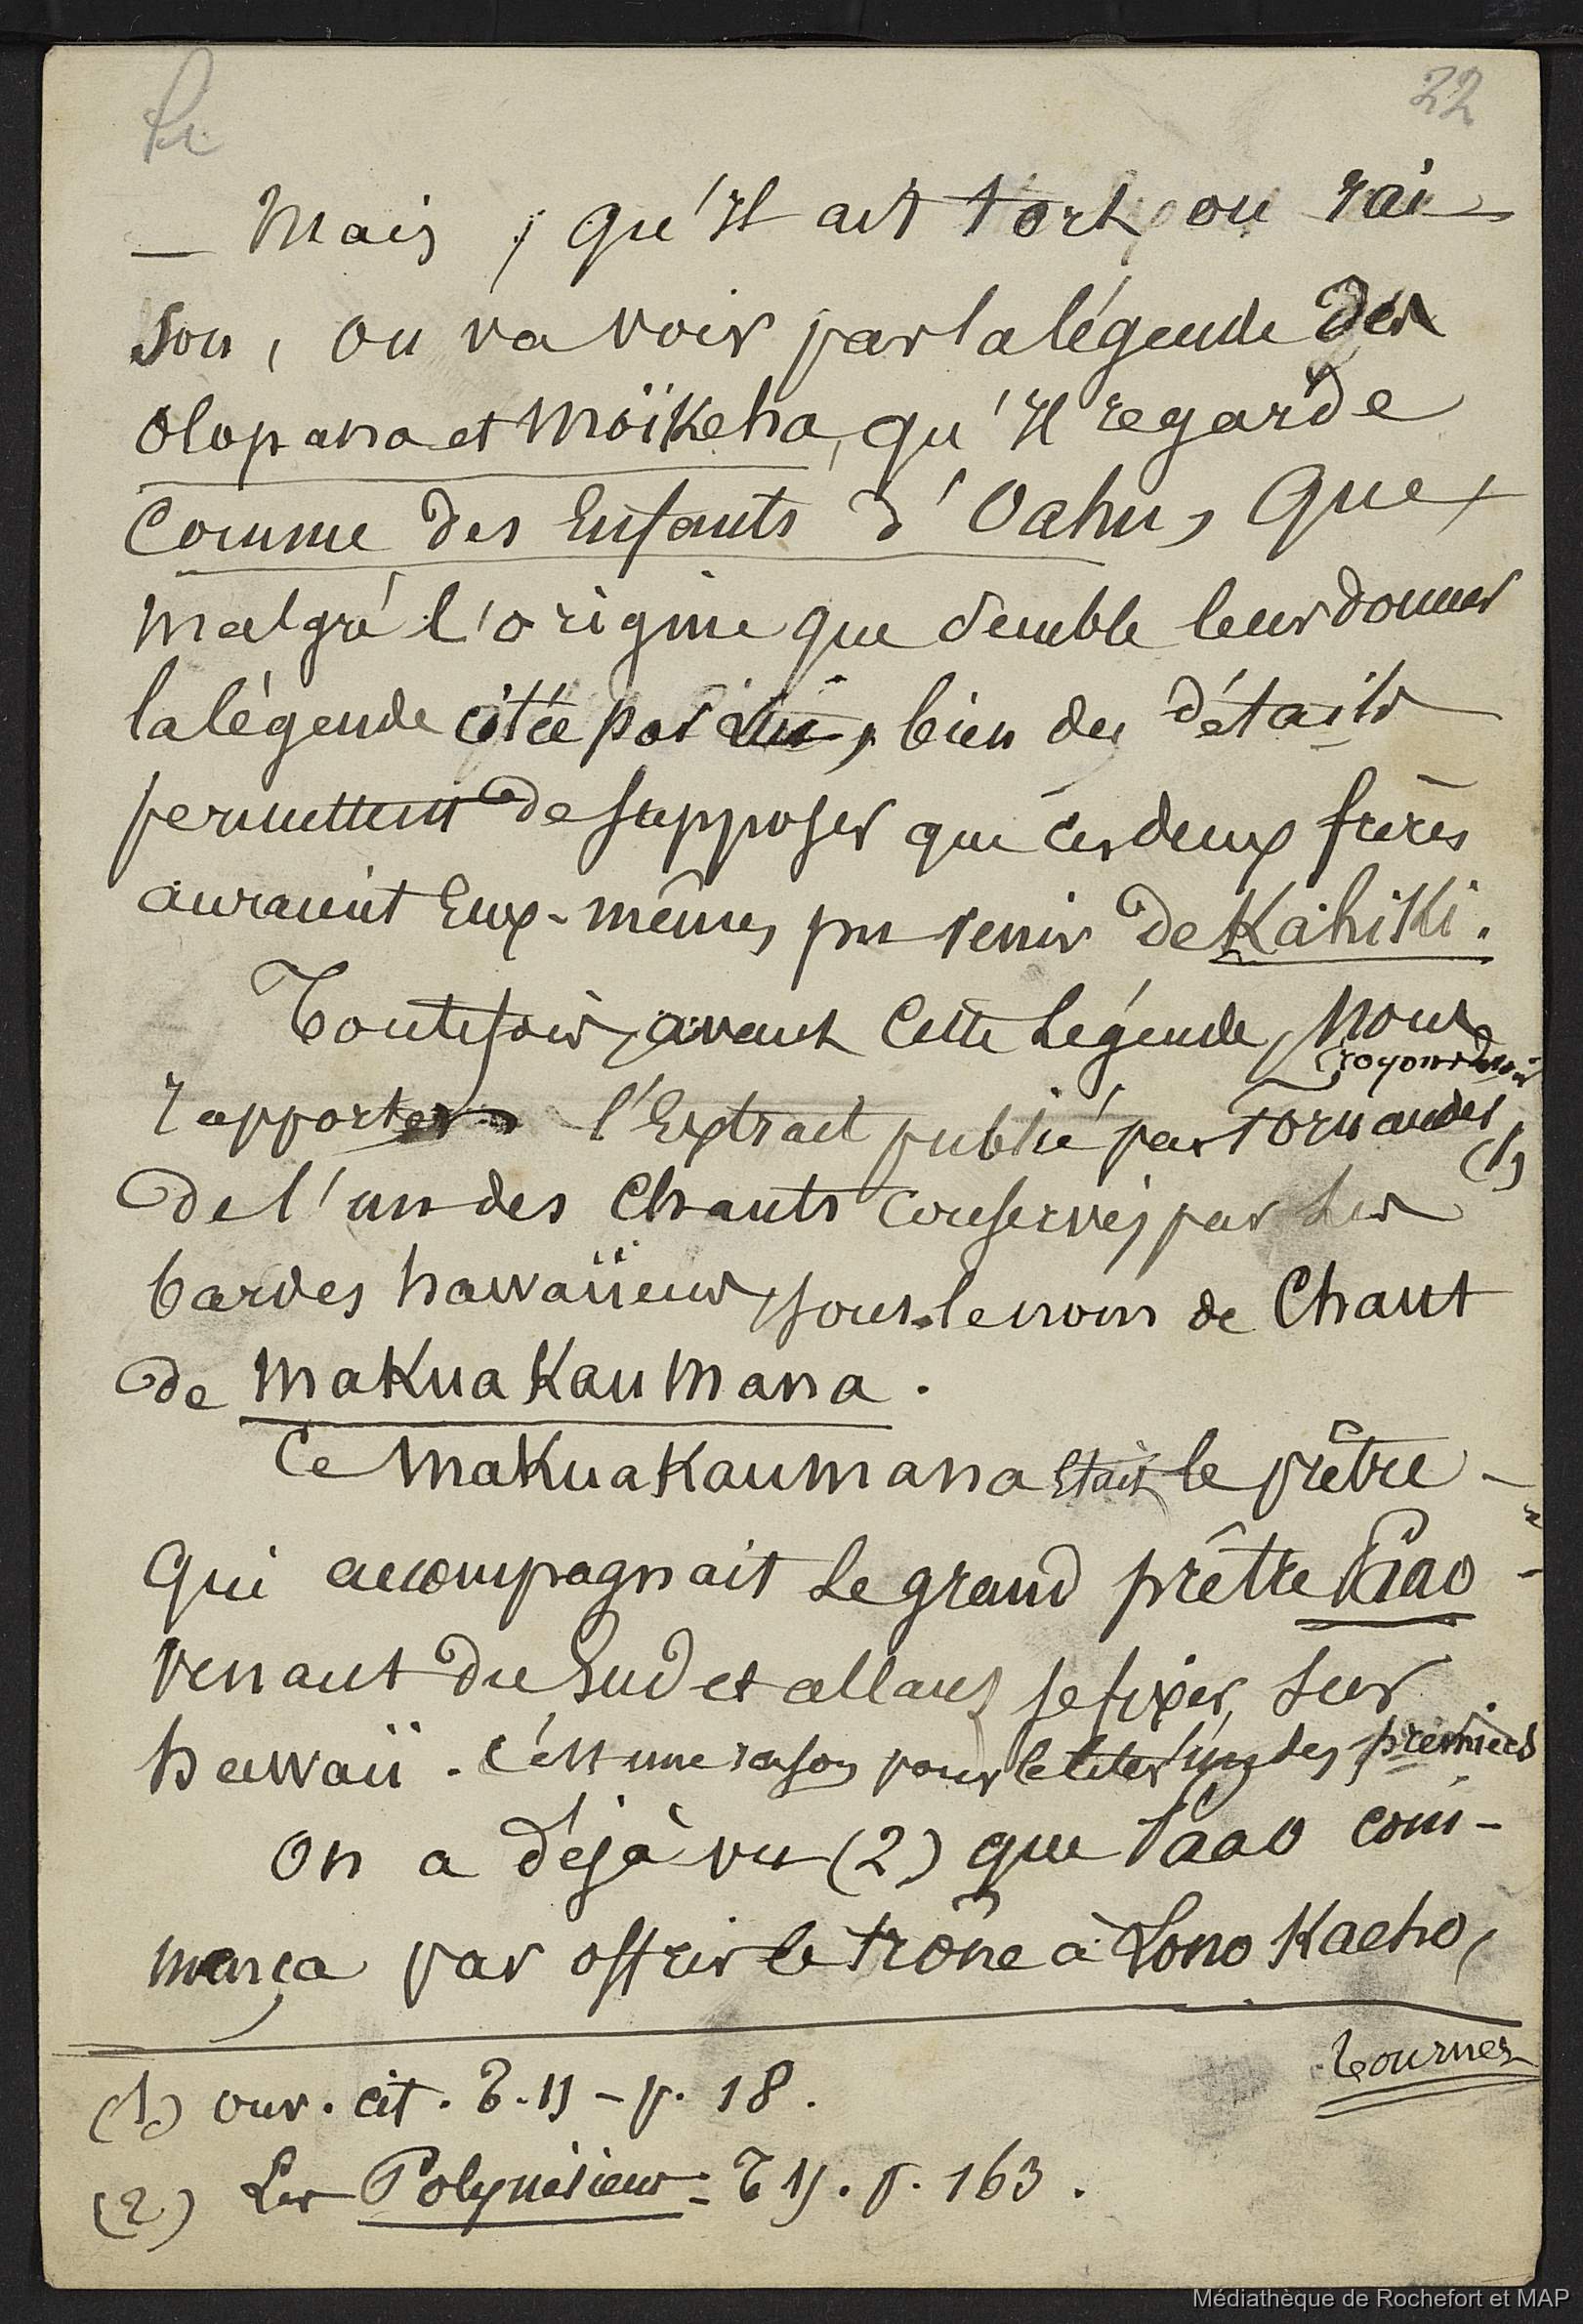 22
— Mais, qu'il ait tort ou rai-
son, on va voir par la légende des
Olopana et Moïkeha, qu'il regarde
comme des Enfants d'Oahu, que,
malgré l'origine que semble leur donner
la légende citée par lui, bien des détails
permettent de supposer que ces deux frères
auraient Eux-mêmes pu venir de Kahiki.
Toutefois, avant cette légende, nous
croyons devoir
rapporter l'Extrait publié par Fornander,
(1)
de l'un des Chants conservés par les
bardes hawaiiens, sous le nom de Chant
de Makua Kaumana.
Ce Makuakaumana était le prêtre
qui accompagnait le grand prêtre Paao
venant du Sud et allant se fixer sur
hawaii. C'est une raison pour le citer l'un des premiers
On a déjà vu (2) que Paao com-
mença par offrir le trône à Lono Kaeho,
Tournez
(1) ouv. cit. T. II - p. 18.
(2) Les Polynésiens - T II. p. 163.
Médiathèque de Rochefort et MAP